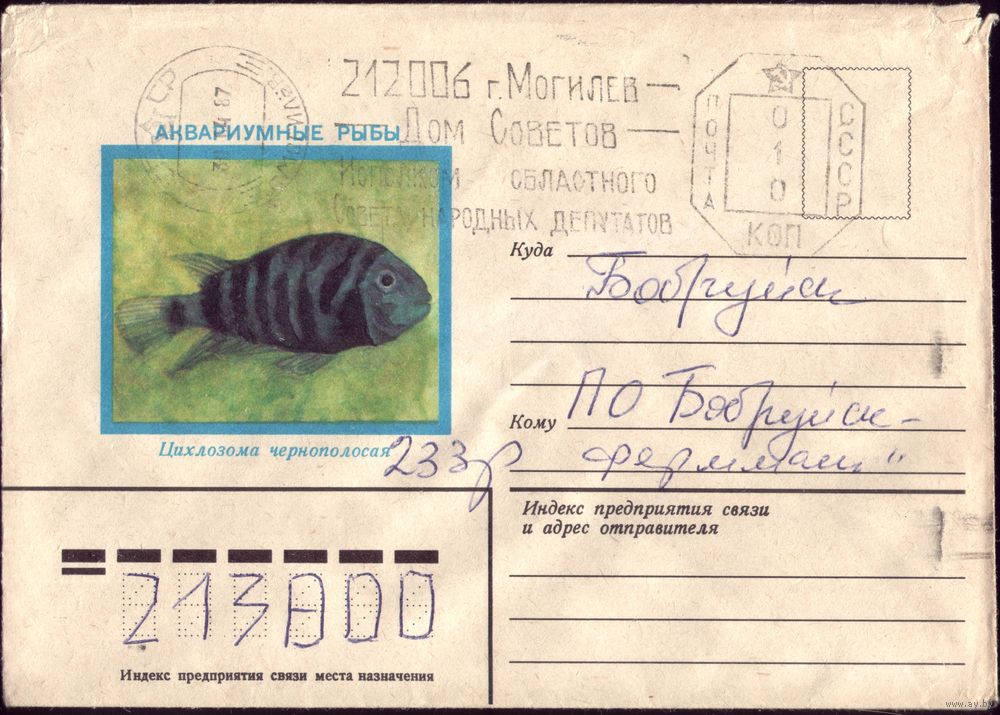 212006 г. Могилев
Дом Советов
Исполком областного
Совета народных депутатов
ПОЧТА
СССР
010
КОП
87
АКВАРИУМНЫЕ РЫБЫ
Цихлозома чернополосая
Куда
Бобруйск
Кому
ПО Бобруйск-
ферммаш"
233р
Индекс предприятия связи
и адрес отправителя
213800
Индекс предприятия связи места назначения
www.ay.by